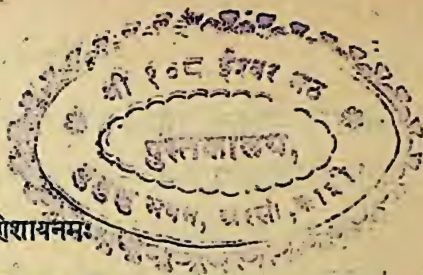 श्री १०८ ईश्वर मठ
पुस्तकालय,
भवन, अस्सी, काशी.
शायनमः